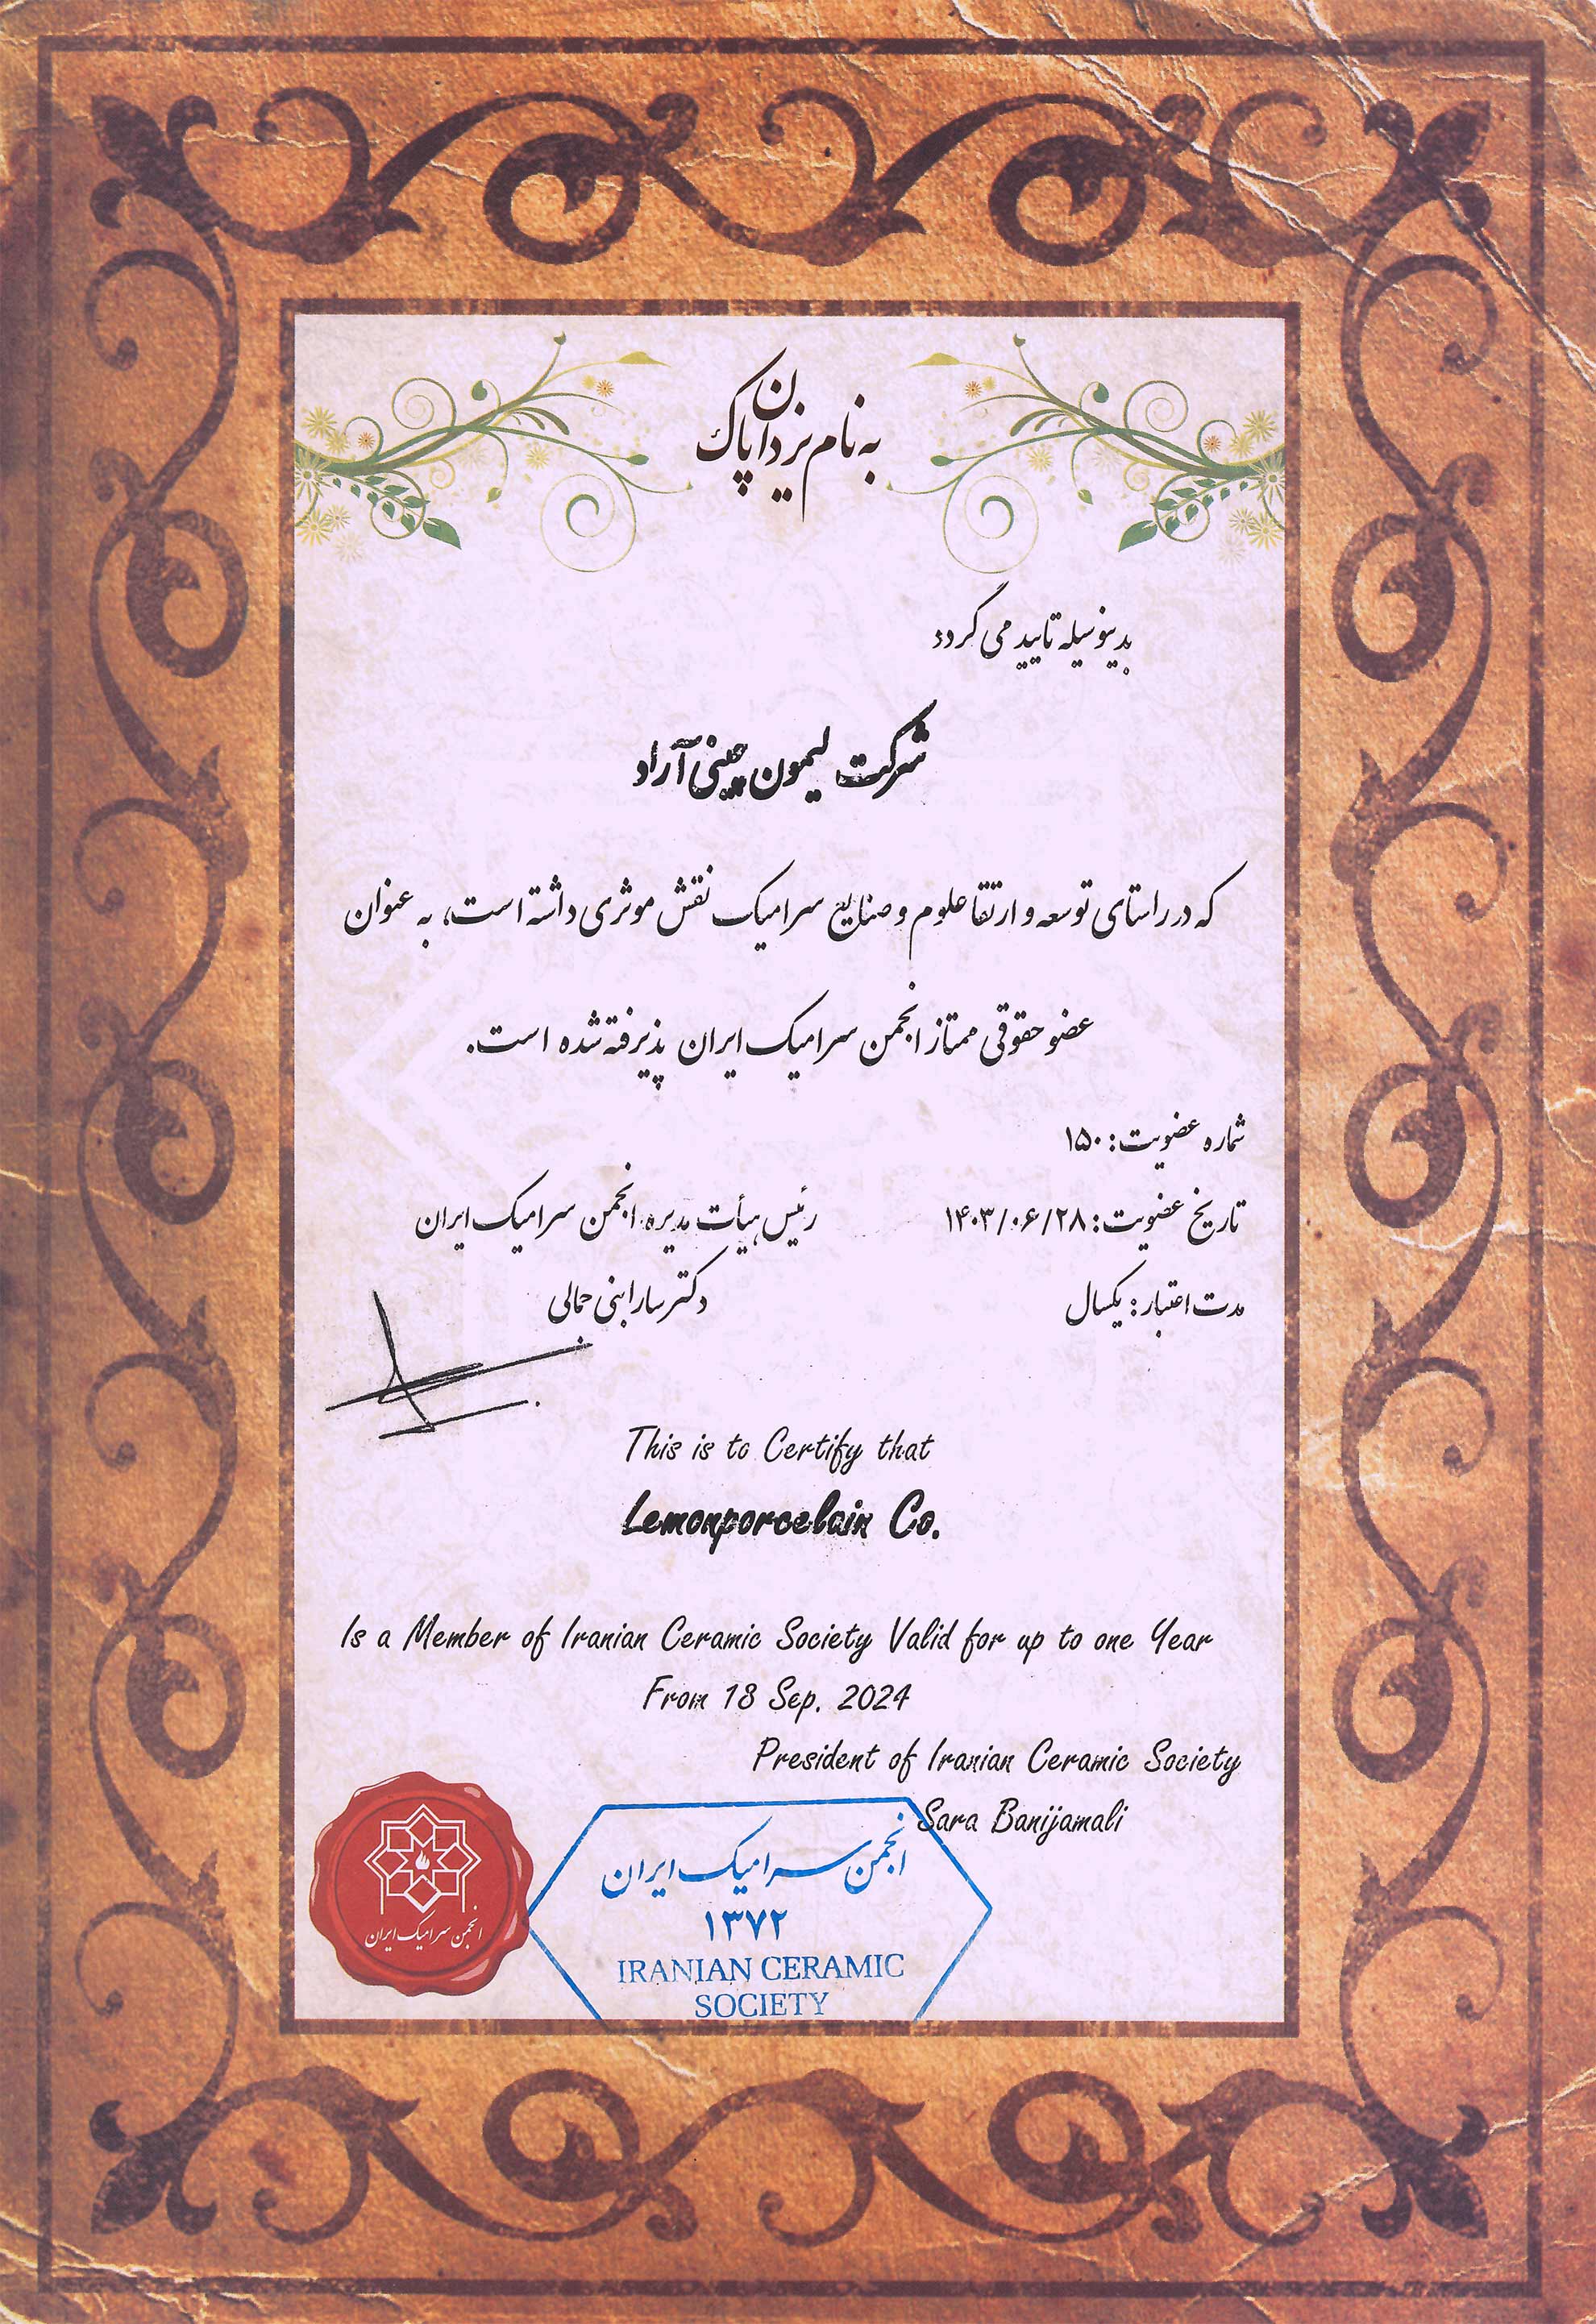 به نام یزدان پاک
بدینوسیله تایید می گردد
شرکت لیمون چینی آراد
که در راستای توسعه و ارتقا علوم و صنایع سرامیک نقش موثری داشته است، به عنوان
عضو حقوقی ممتاز انجمن سرامیک ایران پذیرفته شده است.
شماره عضویت: ۱۵۰
تاریخ عضویت: ۱۴۰۳/۰۶/۲۸
مدت اعتبار: یکسال
رئیس هیأت مدیره انجمن سرامیک ایران
دکتر سارا بنی جمالی
This is to Certify that
Lemonporcelain Co.
Is a Member of Iranian Ceramic Society Valid for up to one Year
From 18 Sep. 2024
President of Iranian Ceramic Society
Sara Banijamali
انجمن سرامیک ایران
۱۳۷۲
IRANIAN CERAMIC
SOCIETY
انجمن سرامیک ایران